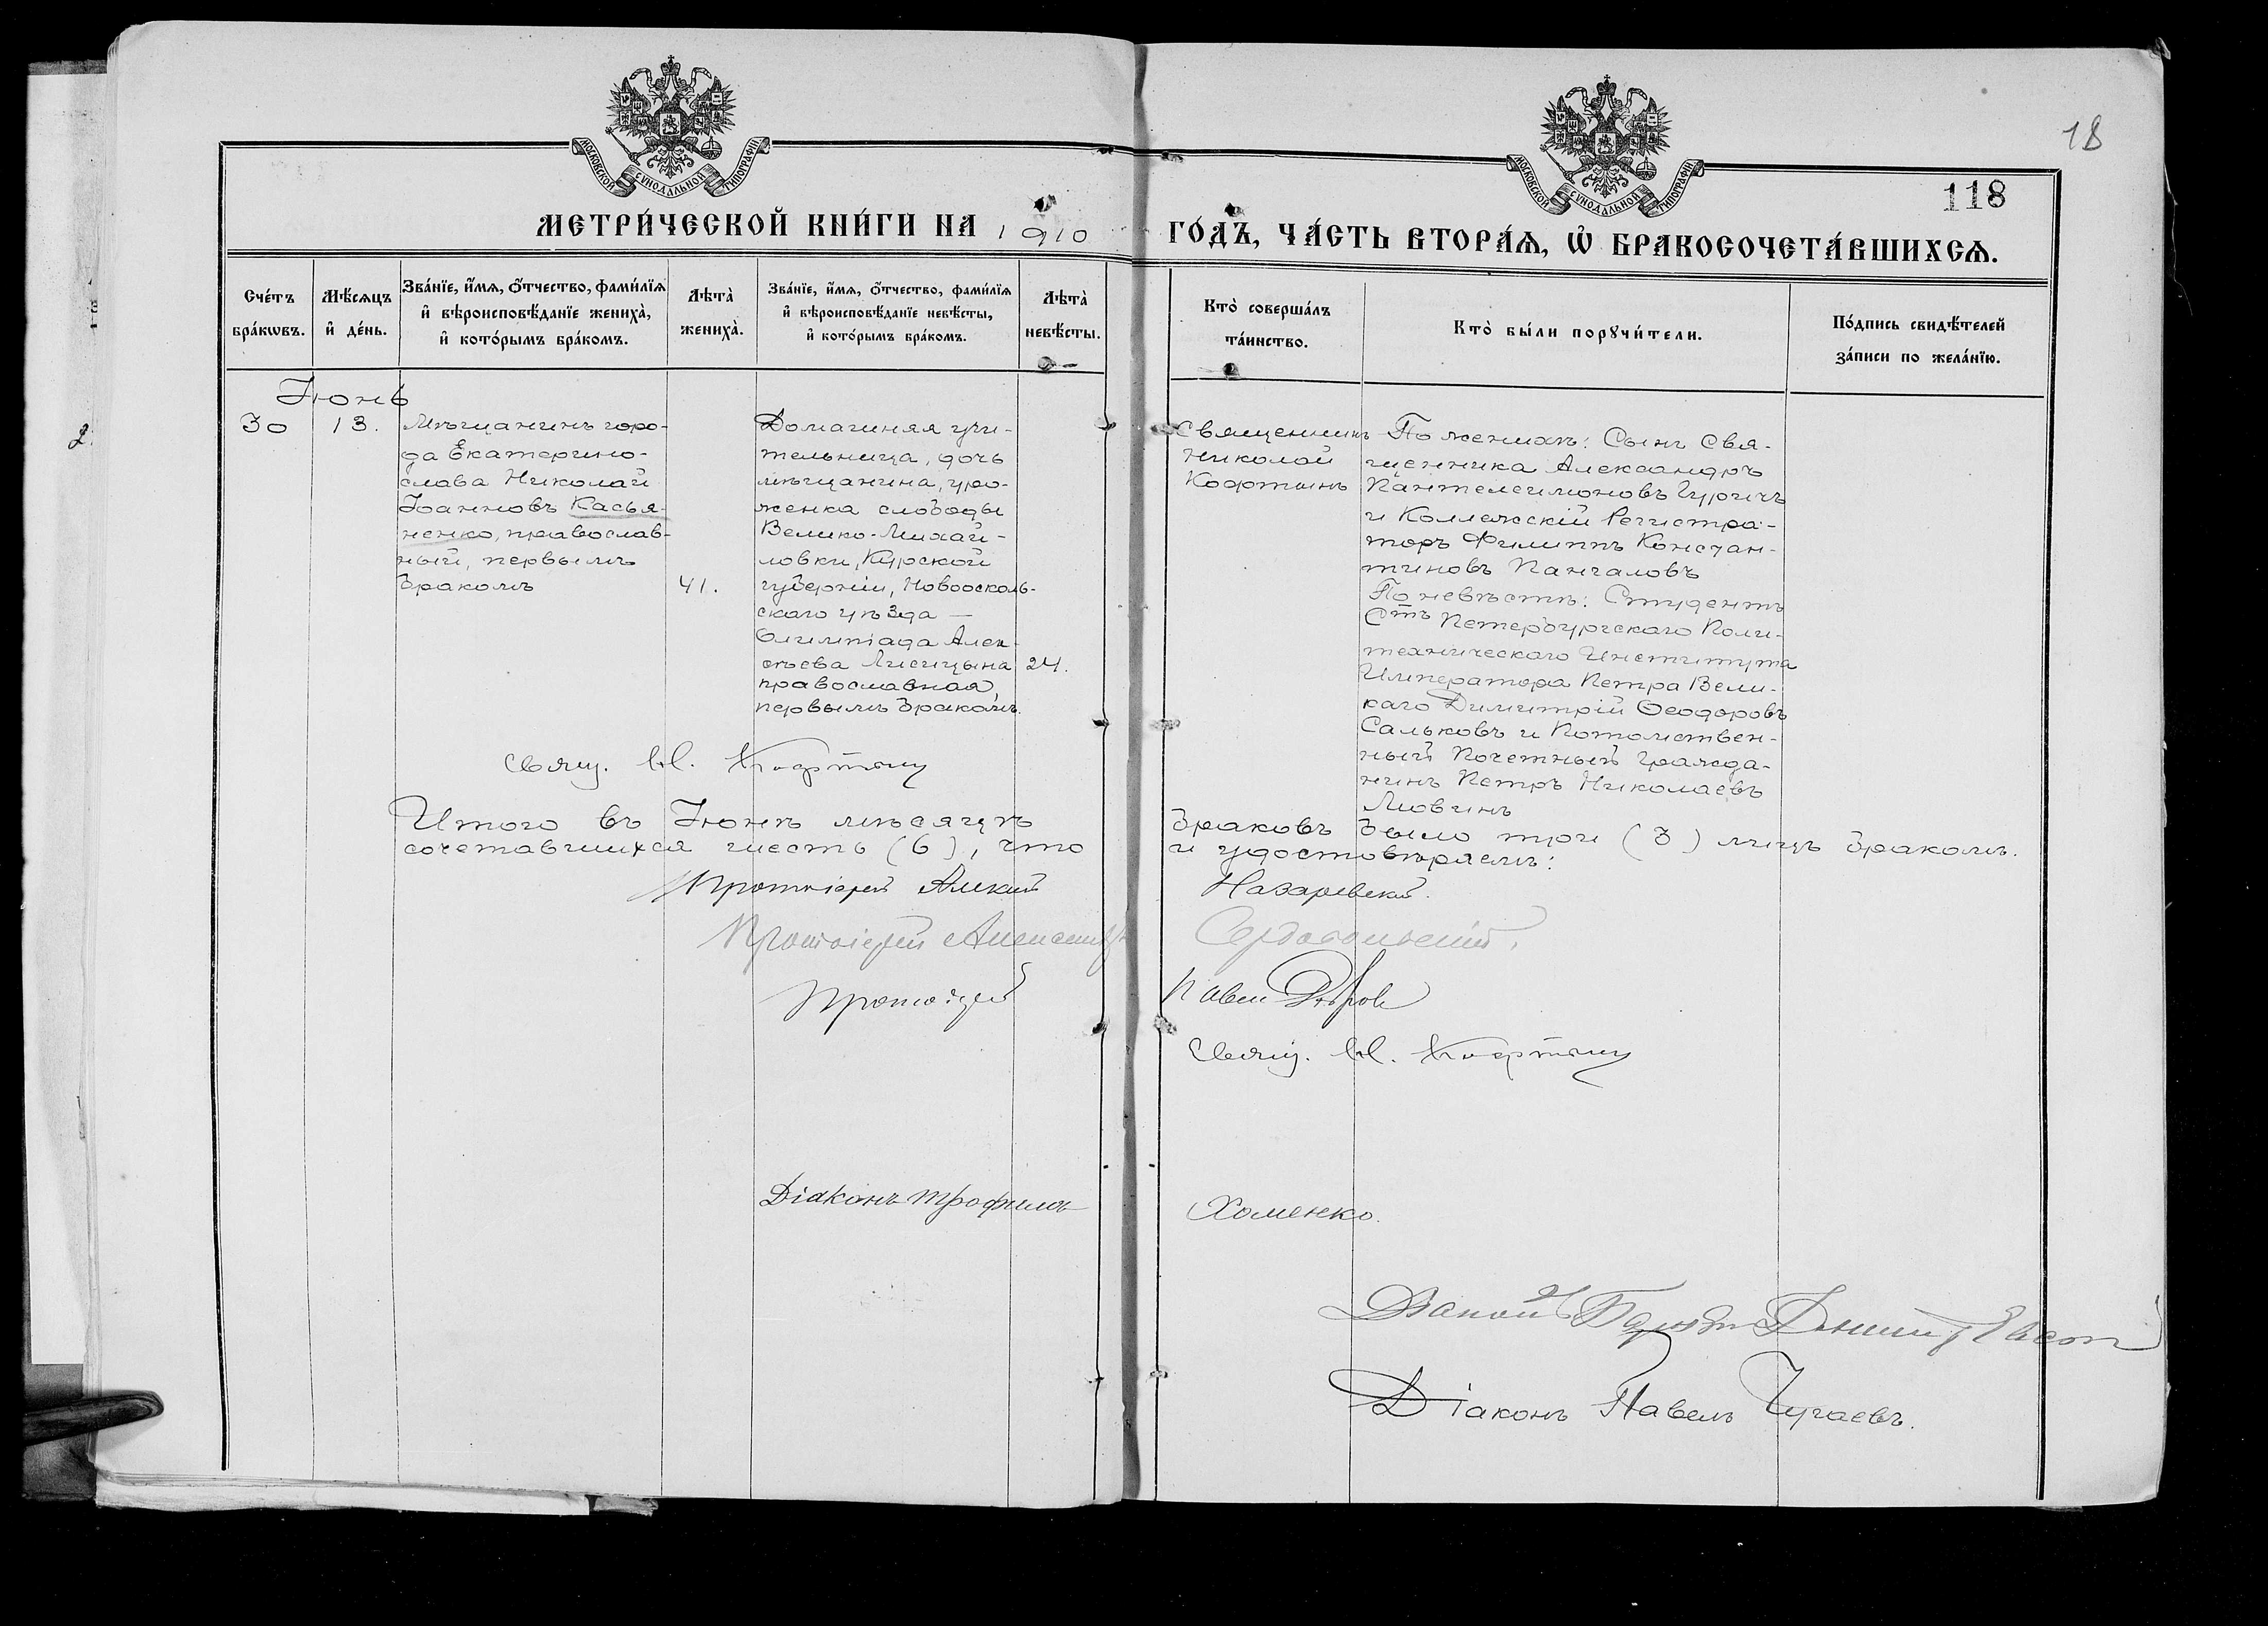 18
118
МОСКОВСКОЙ СУНОДАЛЬНОЙ ТИПОГРАФІИ
МОСКОВСКОЙ СУНОДАЛЬНОЙ ТИПОГРАФІИ
МЕТРИ́ЧЕСКОЙ КНИ́ГИ НА 1910
ГО́ДЪ, ЧА́СТЬ ВТОРА́Ѧ, Ѽ БРАКОСОЧЕТА́ВШИХСѦ.
Сче́тъ
бра́кѡвъ.
Мѣ́сѧцъ
и҆ де́нь.
Зва́нїе, и҆́мѧ, ѻ҆́тчество, фами́лїѧ
и҆ вѣроисповѣ́данїе жениха̀,
и҆ кото́рымъ бра́комъ.
Лѣта̀
жениха̀.
Зва́нїе, и҆́мѧ, ѻ҆́тчество, фами́лїѧ
и҆ вѣроисповѣ́данїе невѣ́сты,
и҆ кото́рымъ бра́комъ.
Лѣта̀
невѣ́сты.
Кто̀ соверша́лъ
та́инство.
Кто̀ бы́ли порꙋчи́тели.
По́дпись свидѣ́телей
за́писи по жела́нїю.
Іюнь
30
13.
Мѣщанинъ горо-
да Екатерино-
слава Николай
Іоанновъ Касья-
ненко, православ-
ный, первымъ
бракомъ
41.
Домашняя учи-
тельница, дочь
мѣщанина, уро-
женка слободы
Велико-Михай-
ловки, Курской
губерніи, Новоосколь-
скаго уѣзда —
Олимпіада Алек-
сѣева Лисицына
православная,
первымъ бракомъ.
24.
Священникъ
Николай
Кофтынъ
По женихѣ: Сынъ Свя-
щенника Александръ
Пантелеимоновъ Гуричъ
и Коллежскій Регистра-
торъ Филиппъ Констан-
тиновъ Панчаловъ
По невѣстѣ: Студентъ
Стъ Петербургскаго Поли-
техническаго Института
Императора Петра Вели-
каго Димитрій Ѳеодоровъ
Сальковъ и Потомствен-
ный Почетный Гражда-
нинъ Петръ Николаевъ
Мовчинъ
Свящ. Н. Кофтынъ
Итого въ Іюнѣ мѣсяцѣ браковъ было три (3) лицъ бракомъ.
сочетавшихся шесть (6), что и удостовѣряемъ:
Протоіерей Алексій Назаревскій.
Протоіерей Александръ Сердобольскій.
Протоіерей Павелъ
Свящ. Н. Кофтынъ
Діаконъ Трофимъ Хоменко.
Діаконъ Павелъ Чугаевъ.